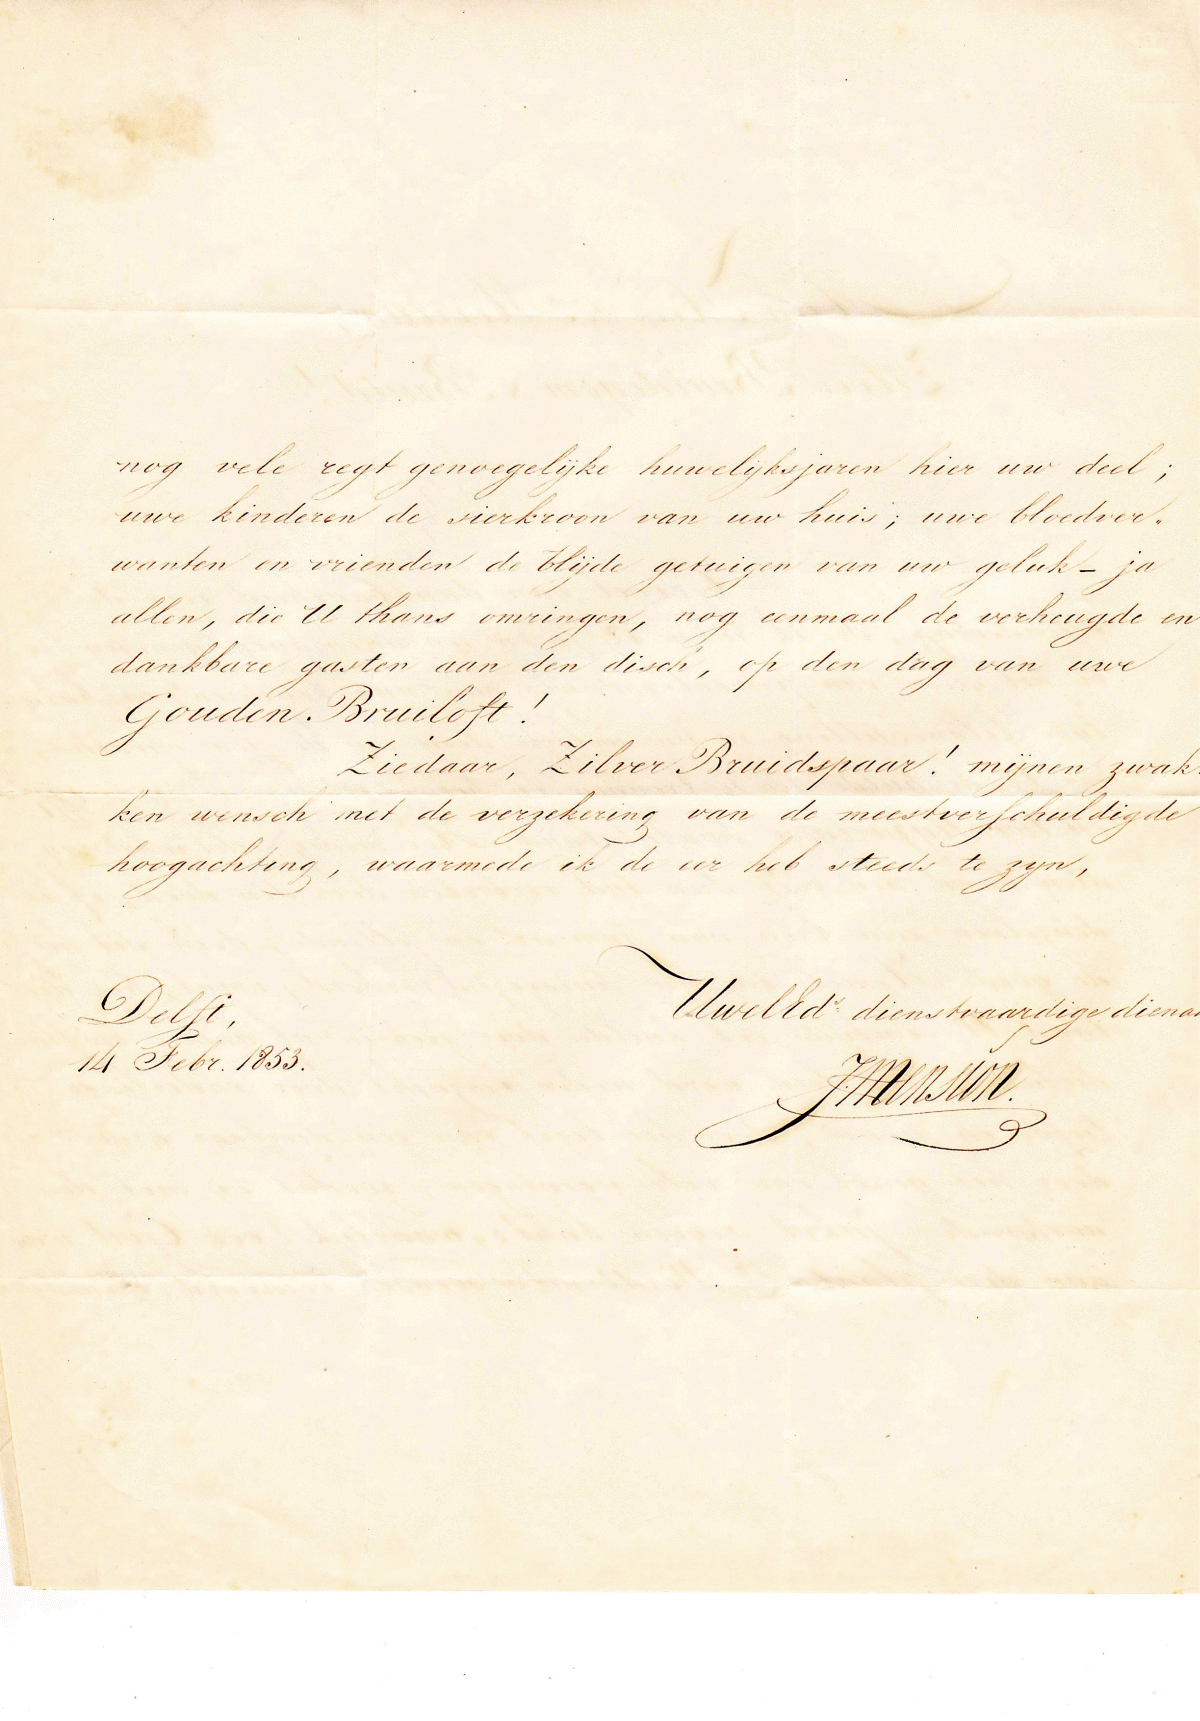 nog vele regt genoegelijke huwelijksjaren hier uw deel;
uwe kinderen de sierkroon van uw huis; uwe bloedver-
wanten en vrienden de blijde getuigen van uw geluk – ja
allen, die U thans omringen, nog eenmaal de verheugde en
dankbare gasten aan den disch, op den dag van uwe
Gouden-Bruiloft!
Ziedaar, Zilver Bruidspaar! mijnen zwak-
ken wensch met de verzekering van de meestverschuldigde
hoogachting, waarmede ik de eer heb steeds te zyn,
UwelEd. dienstvaardige diena
Delft,
14 Febr. 1853.